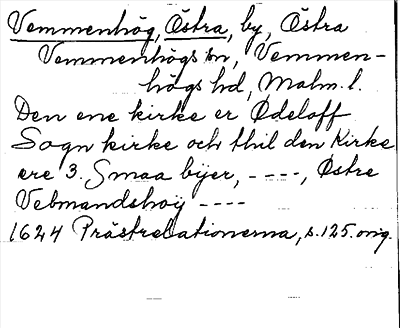 Vemmenhög, Östra, by, Östra
Vemmenhögs sn, Vemmen-
högs hd, Malm. l.
Den ene kirke er Ødeloff
Sogn kirke och thil den Kirke
ere 3. Smaa byer, ----, Østre
Vebmandshoÿ ----
1624 Prästrelationerna, s. 125. orig.